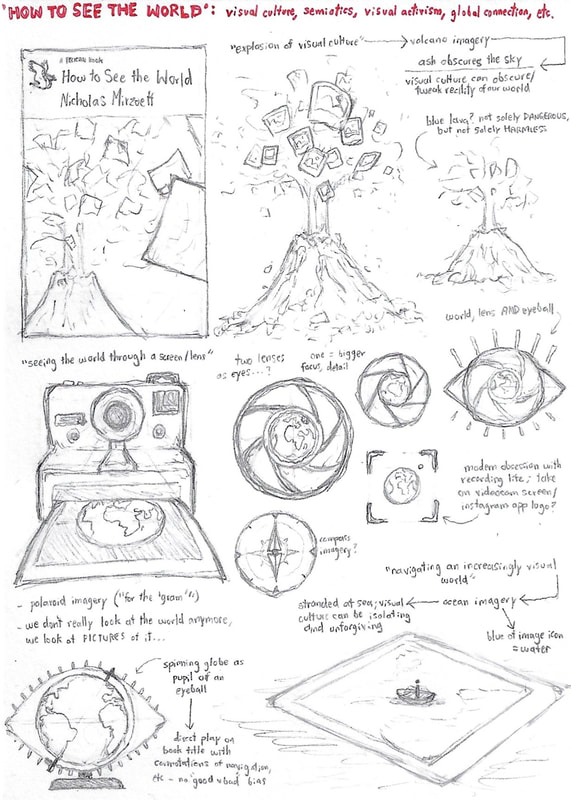 "HOW TO SEE THE WORLD": visual culture, semiotics, visual activism, global connection, etc.
A PELICAN BOOK
How to See the World
Nicholas Mirzoeff
"explosion of visual culture"
volcano imagery
ash obscures the sky
visual culture can obscure/
tweak reality of our world
blue lava? not solely DANGEROUS,
but not solely HARMLESS
world, lens AND eyeball
"seeing the world through a screen/lens"
two lenses
as eyes...?
one = bigger
focus, detail
modern obsession with
recording life; take
on videocam screen/
instagram app logo?
compass
imagery?
"navigating an increasingly visual
world"
ocean imagery
stranded at sea; visual
culture can be isolating
and unforgiving
blue of image icon
= water
- polaroid imagery ("for the 'gram'")
- we don't really look at the world anymore,
we look at PICTURES of it...
spinning globe as
pupil of an
eyeball
direct play on
book title with
connotations of navigation,
etc - no good v bad bias